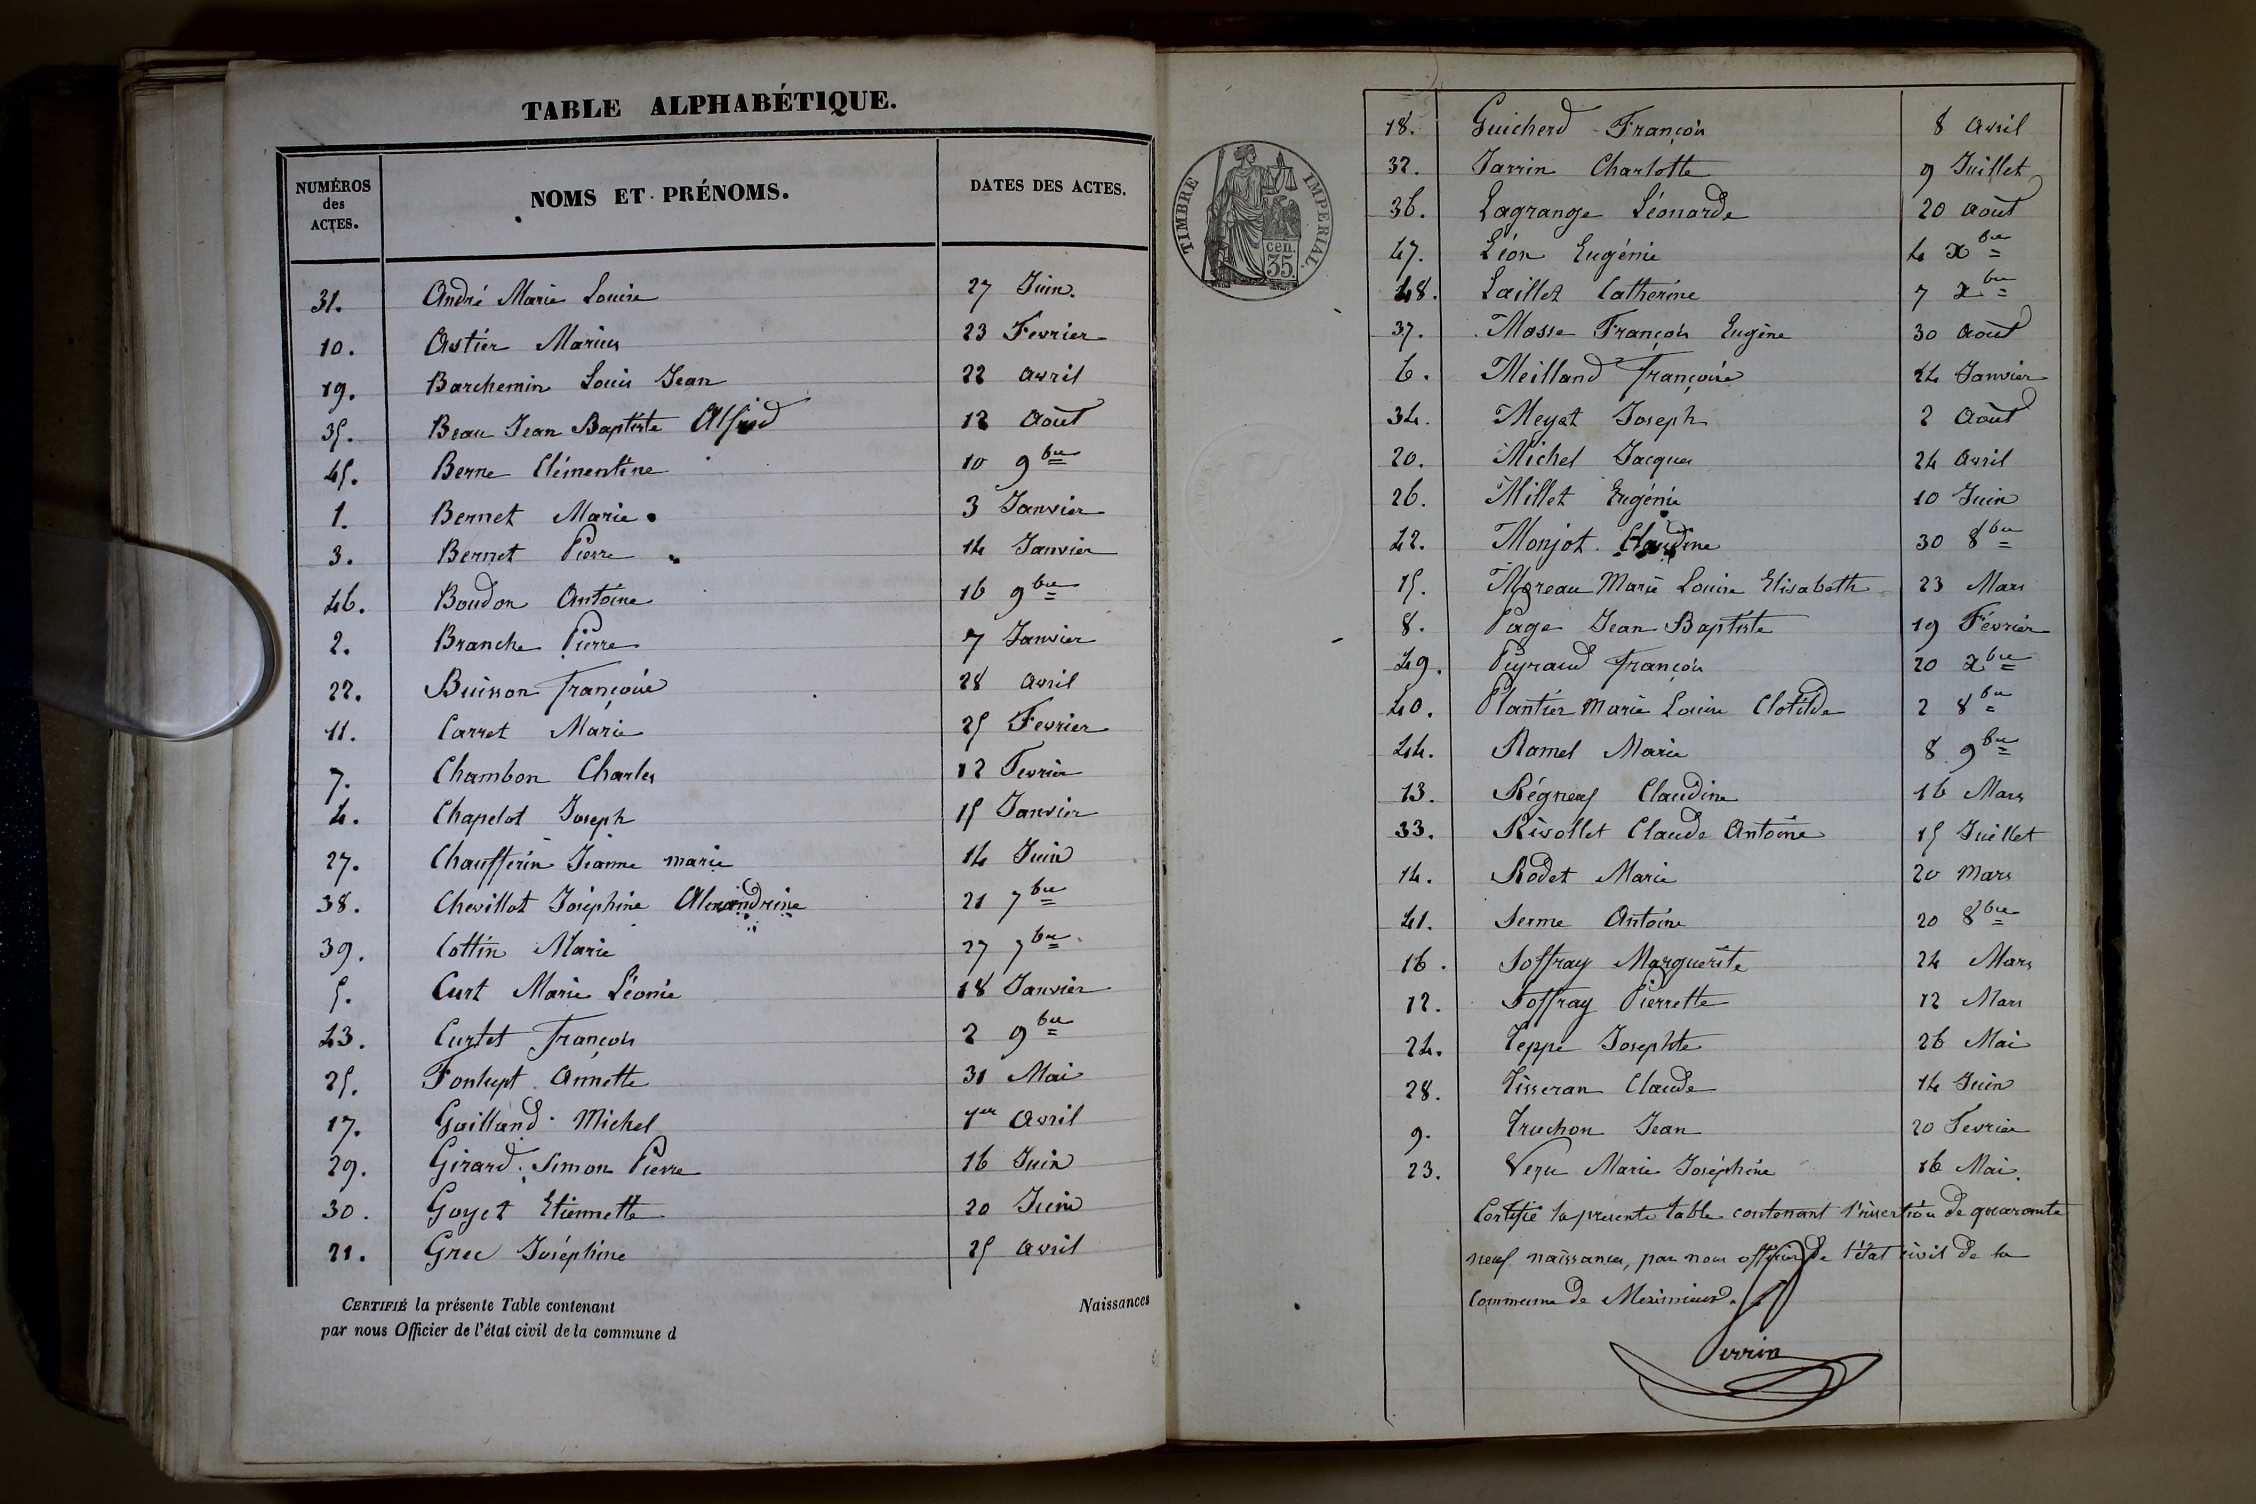 TABLE ALPHABÉTIQUE.
NUMÉROS des ACTES. NOMS ET PRÉNOMS. DATES DES ACTES.
31. André Marie Louise 27 Juin.
10. Astier Marius 23 Fevrier
19. Barchemin Louis Jean 22 avril
35. Beau Jean Baptiste Alfred 12 Août
45. Berne Clémentine 10 9bre
1. Bernet Marie 3 Janvier
3. Bernet Pierre 14 Janvier
46. Boudon Antoine 16 9bre
2. Branche Pierre 7 Janvier
22. Buisson Françoise 28 avril
11. Carret Marie 25 Fevrier
7. Chambon Charles 12 Fevrier
4. Chapelot Joseph 15 Janvier
27. Chaufferin Jeanne marie 14 Juin
38. Chevillot Joséphine Alexandrine 21 7bre
39. Cottin Marie 27 7bre
5. Curt Marie Léonie 18 Janvier
43. Curtet François 2 9bre
25. Fontupt Annette 31 Mai
17. Gailland Michel 1er Avril
29. Girard Simon Pierre 16 Juin
30. Goyet Etiennette 20 Juin
21. Grec Joséphine 25 avril
CERTIFIÉ la présente Table contenant Naissances
par nous Officier de l'état civil de la commune d
TIMBRE IMPERIAL.
cen.
35.
18. Guicherd François 8 avril
32. Jarrin Charlotte 9 Juillet
36. Lagrange Léonarde 20 août
47. Léon Eugénie 4 xbre
48. Laillet Catherine 7 xbre
37. Masse François Eugène 30 août
6. Meilland Françoise 24 Janvier
34. Meyat Joseph 2 Août
20. Michel Jacques 24 avril
26. Millet Eugénie 10 Juin
42. Monjot Claudine 30 8bre
15. Moreau Marie Louise Elisabeth 23 Mars
8. Page Jean Baptiste 19 Février
49. Peyraud François 20 xbre
40. Plantier Marie Louise Clotilde 2 8bre
44. Ramel Marie 8 9bre
13. Régneuf Claudine 16 Mars
33. Rivollet Claude Antoine 15 Juillet
14. Rodet Marie 20 mars
41. Serme Antoine 20 8bre
16. Soffray Marguerite 24 Mars
12. Soffray Pierrette 12 Mars
24. Teppe Josephte 26 Mai
28. Tisseran Claude 14 Juin
9. Truchon Jean 20 Fevrier
23. Marie Joséphine 16 Mai.
Certifié la présente table contenant l'insertion de quarante
neuf naissances, par nous officier de l'état civil de la
Commune de Meximieux.
Perrin